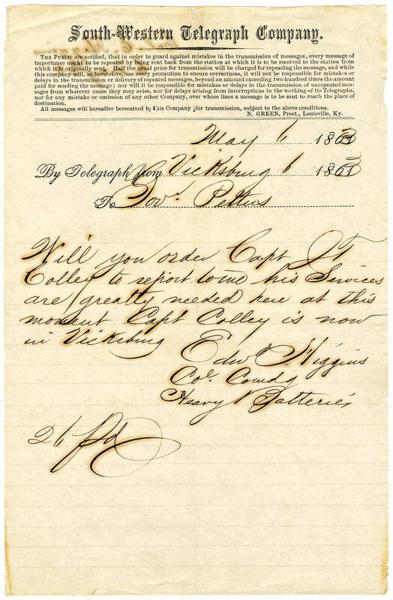 South-Western Telegraph Company.
The Public are notified, that in order to guard against mistakes in the transmission of messages, every message of
importance ought to be repeated by being sent back from the station at which it is to be received to the station from
which it is originally sent. Half the usual price for transmission will be charged for repeating the message, and while
this company will, as heretofore, use every precaution to ensure correctness, it will not be responsible for mistakes or
delays in the transmission or delivery of repeated messages, beyond an amount exceeding two hundred times the amount
paid for sending the message; nor will it be responsible for mistakes or delays in the transmission of unrepeated mes-
sages from whatever cause they may arise, nor for delays arising from interruptions in the working of its Telegraphs,
nor for any mistake or omission of any other Company, over whose lines a message is to be sent to reach the place of
destination.
All messages will hereafter be received by this Company for transmission, subject to the above conditions.
N. GREEN, Prest., Louisville, Ky.
May 6 1863
By Telegraph from Vicksburg 6 1863
To Govr. Pettus
Will you order Capt J T
Colley to report to me his Services
are greatly needed here at this
moment Capt Colley is now
in Vicksburg
Edwd Higgins
Col Comdg
Heavy Batteries
26 pd